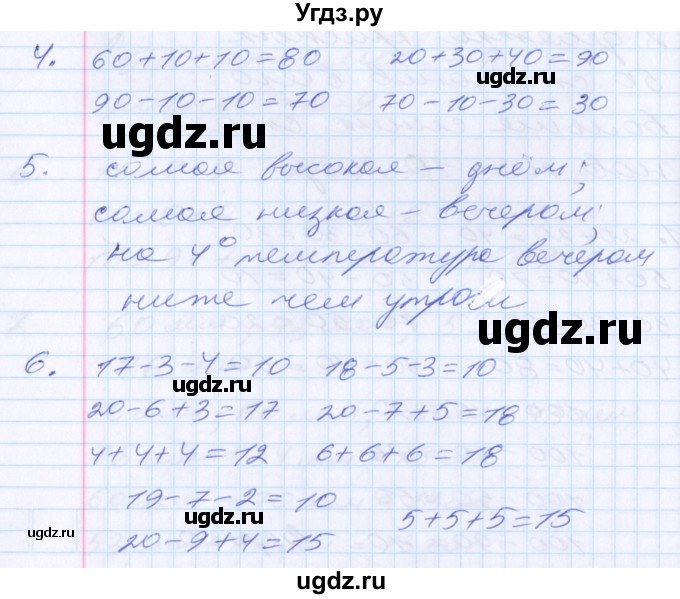 Угдз.ру
4. 60+10+10=80 20+30+40=90
ugdz.ru
90-10-10=70 70-10-30=30
ugdz.ru
5. самая высокая – днём;
самая низкая – вечером;
на 4° температура вечером
ниже чем утром
ugdz.ru
6. 17-3-4=10 18-5-3=10
ugdz.ru
20-6+3=17 20-7+5=18
4+4+4=12 6+6+6=18
19-7-2=10
ugdz.ru
5+5+5=15
ugdz.ru
20-9+4=15
ugdz.ru
ugdz.ru